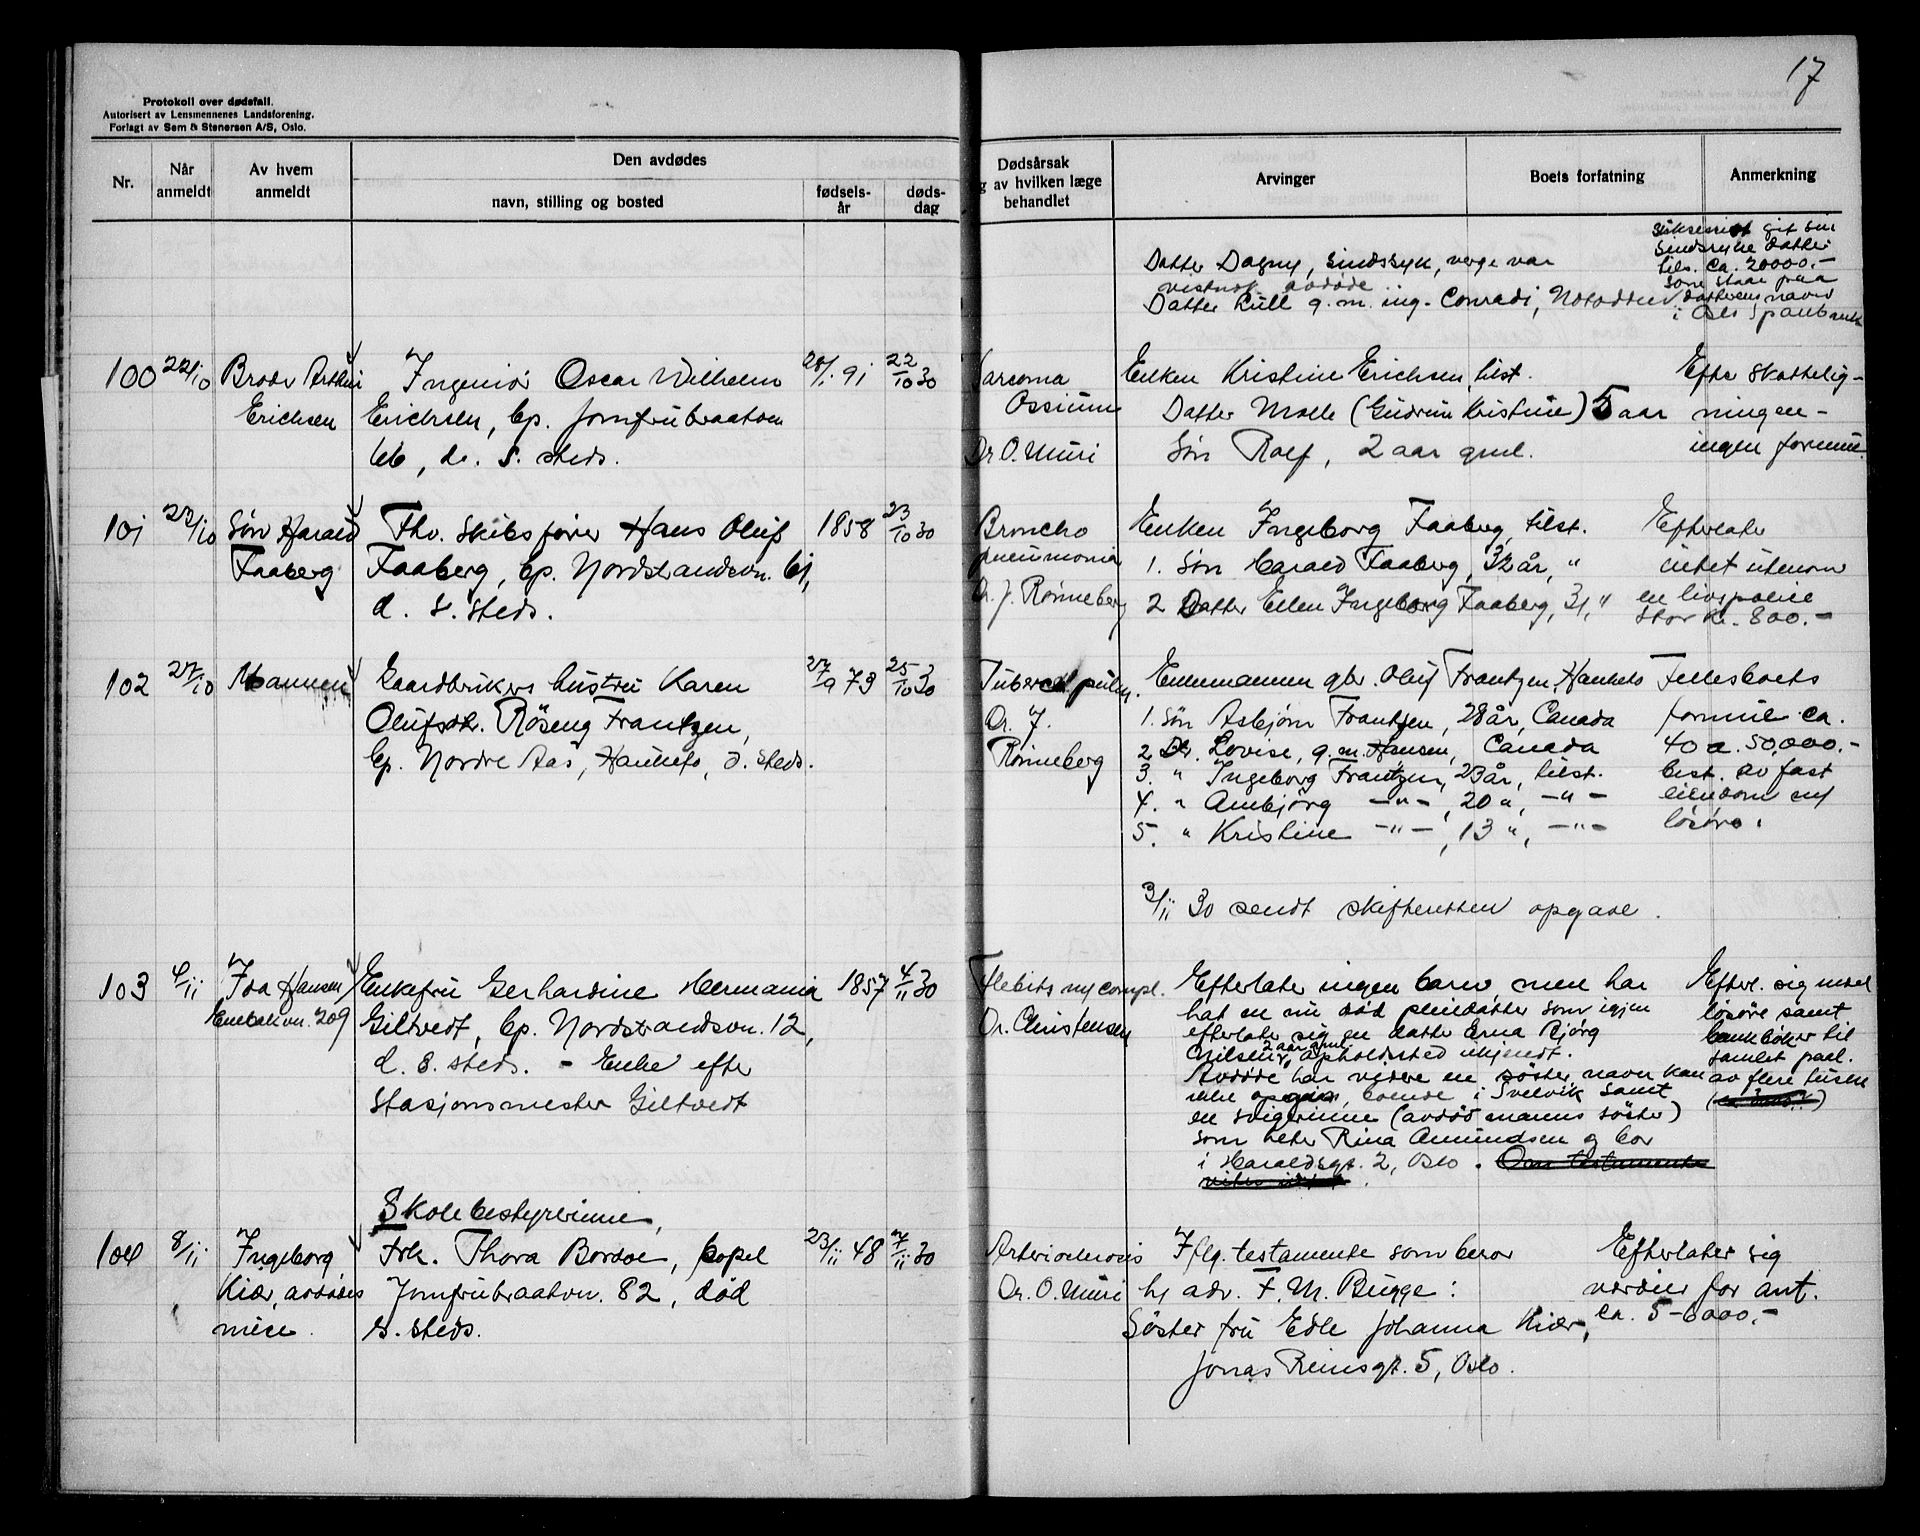 17
Protokoll over dødsfall.
Autorisert av Lensmennenes Landsforening.
Forlagt av Sem & Stenersen A/S, Oslo.
Nr.
Når anmeldt
Av hvem anmeldt
Den avdødes
navn, stilling og bosted
fødsels-år
døds-dag
Dødsårsak
g av hvilken læge
behandlet
Arvinger
Boets forfatning
Anmerkning
Datter Dagny, sindssyk, verge var
vistnok avdøde.
Datter Lull g.m. ing. Conradi, Notodden
git sin
sindssyke datter
tils. ca. 20000.-
som staar paa
datterens navn
i Oslo Sparebank
100
22/10
Broder Arthur
Erichsen
Ingeniør Oscar Wilhelm
Erichsen, bp. Jomfrubraatvn
66, d. s. steds.
28/1 91
22/10 30
Sarcoma
Ossium
Dr O. Muri
Enken Kristine Erichsen, tilst.
Datter Molle (Gudrun Kristine) 5 aar
Søn Rolf, 2 aar gml.
Efter skattelig-
ningen -
ingen formue.
101
23/10
Søn Harald
Faaberg
Fhv. Skibsfører Hans Oluf
Faaberg, bp. Nordstrandsvn. 61,
d. s. steds.
1858
23/10 30
Broncho
pneumonia
Dr. J. Rønneberg
Enken Ingeborg Faaberg, tilst.
1. Søn Harald Faaberg, 32 år, "
2 Datter Ellen Ingeborg Faaberg, 31, "
Efterlater
intet utenom
en livspolise
stor kr. 800.-
102
27/10
Mannen
Gaardbrukers hustru Karen
Olufsdtr. Røseng Frantzen,
bp. Nordre Aas, Hauketo, d. steds.
27/9 73
25/10 30
Tubercul. pulm.
Dr. J.
Rønneberg
Enkemannen gbr. Oluf Frantzen, Hauketo
1. Søn Asbjørn Frantzen, 28 år, Canada
2 Dr. Lovise, g.m. Hansen, Canada
3. " Ingeborg Frantzen, 23 år, tilst.
4. " Annbjørg -"-, 20 ", -"-
5. " Kristine -"-, 13 ", -"-
Fellesboets
formue ca.
40 a. 50,000.-
best. av fast
eiendom og
løsøre.
3/11 30 sendt skifteretten opgave.
103
4/11
Ida Hansen
Enebakvn. 209
Enkefru Gerhardine Hermania
Giltvedt, bp. Nordstrandsvn. 12,
d. s. steds. - Enke efter
Stasjonsmester Giltvedt
1857
4/11 30
Flebits og compl.
Dr. Christensen
Efterlater ingen barn men har
hat en nu død pleiedatter som igjen
efterlater sig en datter Erna Bjørg
Nilsen, 2 aar gml. opholdssted ukjendt.
Avdøde har videre en søster navn kan
ikke opgies, boende i Svelvik samt
en svigerinne (avdød manns søster)
som heter Rina Amundsen og bor
i Haraldsgt. 2, Oslo. Om testamente
Efterl. sig endel
løsøre samt
bankbøker til
samlet paal.
av flere tusen
104
8/11
Ingeborg
Kiær, avdødes
niese.
Skolebestyrerinne,
Frk. Thora Bordoe, bopel
Jomfrubraatvn. 82, død
s. steds.
23/11 48
7/11 30
Arteriosclerosis
Dr. O. Muri
Iflg. testamente som beror
hj adv. F. M. Bugge:
Søster fru Edle Johanna Kiær,
Jonas Reinsgt. 5, Oslo.
Efterlater sig
verdier for ant.
ca. 5-6000.-